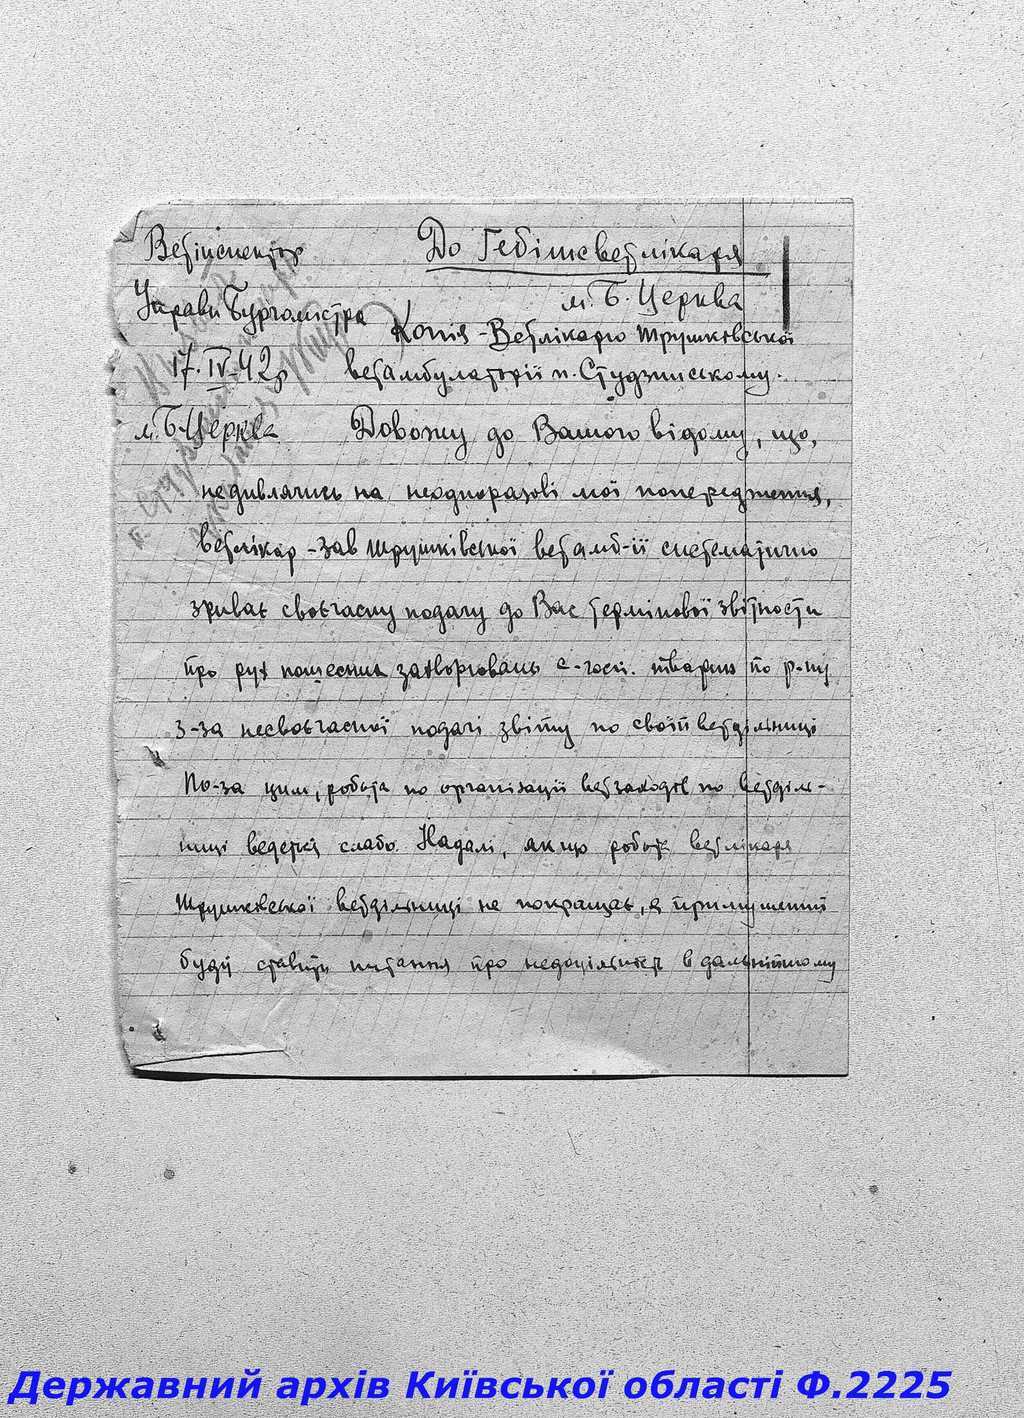 Ветінспектор
Управи Бургомістра
17.IV-42р
м. Б-Церква
До Гебітсветлікаря
м. Б. Церква
Копія - Ветлікарю Трушківської
ветамбулаторії п. Студзинському.
Довожу до Вашого відому, що,
недивлячись на неодноразові мої попередження,
ветлікар - зав Трушківської ветамб-ії систематично
зриває своєчасну подачу до Вас термінової звітности
про рух пошесних захворювань с-госп. тварин по р-ну
з-за несвоєчасної подачі звіту по своїй ветдільниці
По-за цим, робота по організації ветзаходів по ветділь-
ниці ведеться слабо. Надалі, якщо робота ветлікаря
Трушківської ветдільниці не покращає, я примушений
буду ставить питання про недоцільність в дальнійшому
Державний архів Київської області Ф.2225